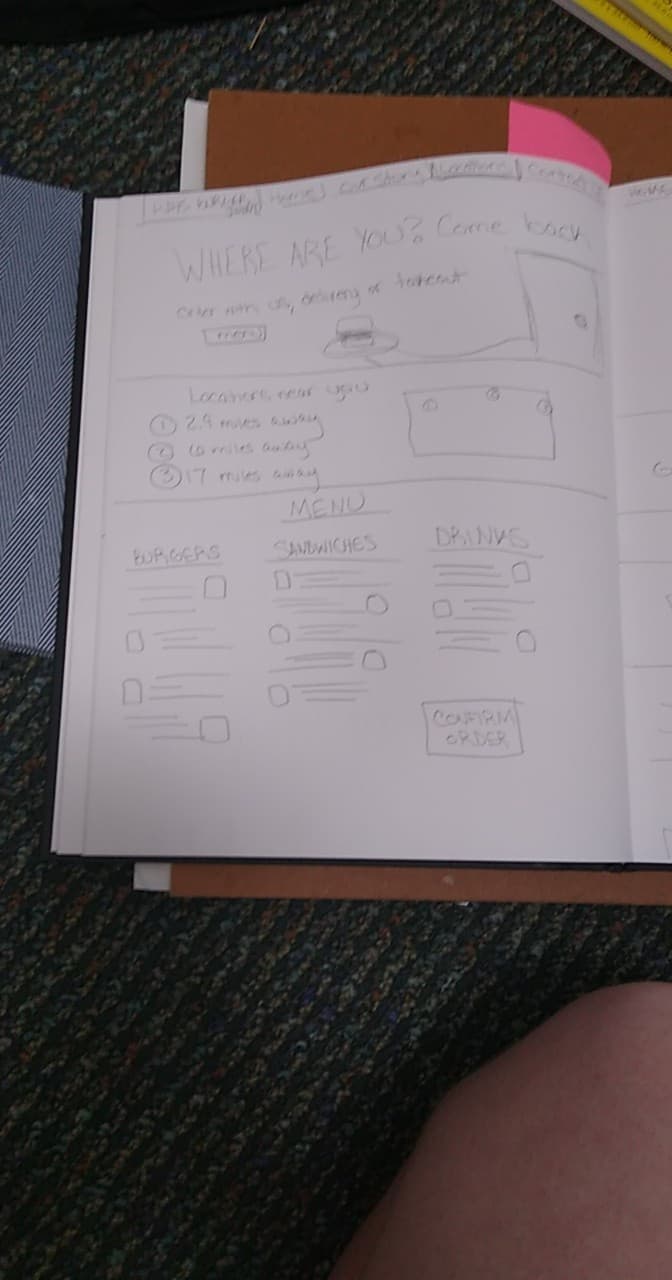 Home Our Story Locations Contact
WHERE ARE YOU? Come back
Order with us, delivery or takeout
menu
Locations near you
① 2.9 miles away
② 10 miles away
③ 17 miles away
MENU
BURGERS SANDWICHES DRINKS
CONFIRM
ORDER